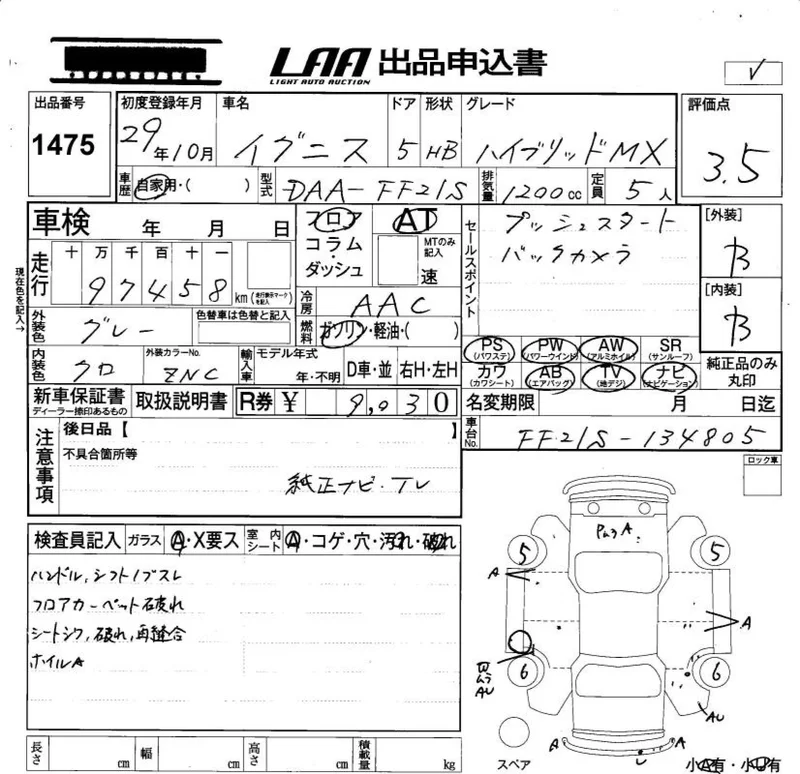 LAA 出品申込書
LIGHT AUTO AUCTION
出品番号 初度登録年月 車名 ドア 形状 グレード 評価点
1475 29年10月 イグニス 5 HB ハイブリッドMX 3.5
車歴 自家用・( ) 型式 DAA-FF21S 排気量 1200cc 定員 5人
車検 年 月 日 フロア AT セールスポイント プッシュスタート [外装]
コラム・ダッシュ MTのみ記入 速 バックカメラ B
現在色を記入→
走行 十 万 千 百 十 一
97458 km (走行表示マークを記入)
冷房 AAC [内装]
外装色 グレー 色替車は色替と記入 燃料 ガソリン・軽油・( ) B
PS (パワステ) PW (パワーウインド) AW (アルミホイル) SR (サンルーフ)
内装色 クロ 外装カラーNo. ZNC 輸入車 モデル年式 年・不明 D車・並 右H・左H
カワ (カワシート) AB (エアバッグ) TV (地デジ) ナビ (ナビゲーション) 純正品のみ丸印
新車保証書 ディーラー捺印あるもの 取扱説明書 R券 ¥ 9,030 名変期限 月 日迄
注意事項 後日品【 】 車台No. FF21S-134805
不具合箇所等 ロック車
純正ナビ・TV
検査員記入 ガラス A・X要ス 室内シート A・コゲ・穴・汚れ・破れ
ハンドル,シフトノブスレ
フロアカーペット破れ
シートシワ,破れ,再縫合
ホイルA
PムラA
5 5
A
A
6 6
凹ムラAU
AU
A A
スペア 小A有・小凹有
長さ cm 幅 cm 高さ cm 積載量 kg